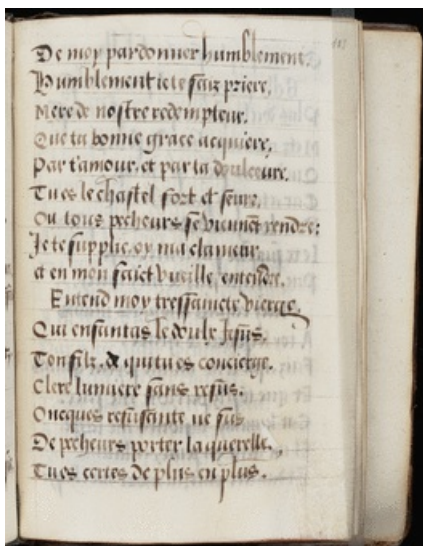 De moy pardonner humblement.
Humblement ie te faiz priere,
Mere de nostre redempteur,
Que ta bonne grace acquiere,
Par t'amour, et par ta doulceur.
Tu es le chastel fort et seure,
Ou tous pecheurs se viennent rendre:
Je te supplie, oy ma clameur
et en mon faict vueille entendre.
Entend moy tressaincte vierge
Qui enfantas le doulx Jesus.
Ton filz, de qui tu es concierge.
Clere lumiere sans refus.
Oncques refusante ne fus
De pecheurs porter la querelle.
Tu es certes de plus en plus.